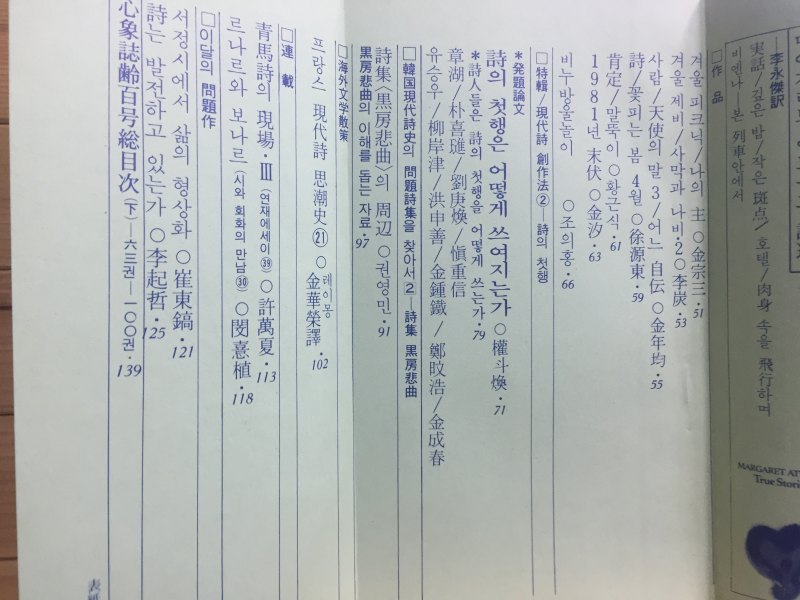 李永傑訳
実話/깊은 밤/작은 斑点/호텔/肉身 속을 飛行하며
비엔나―본 列車안에서
MARGARET AT
True Storie
□作品
겨울 피크닉/나의 主 ○金宗三・51
겨울 제비/사막과 나비・2○李炭・53
사람/天使의 말 3/어느 自伝○金年均・55
詩/꽃피는 봄 4월○徐源東・59
肯定/말뚝이○황근식・61
1981년 末伏○金汐・63
비누방울놀이 ○조의홍・66
□特輯/現代詩 創作法②―詩의 첫행
*発題論文
詩의 첫행은 어떻게 쓰여지는가○權斗煥・71
*詩人들은 詩의 첫행을 어떻게 쓰는가・79
章湖/朴喜璡/劉庚煥/愼重信
유승우/柳岸津/洪申善/金鍾鐵/鄭旼浩/金成春
□韓国現代詩史의 問題詩集을 찾아서②―詩集 黒房悲曲
詩集〈黒房悲曲〉의 周辺○권영민・91
黒房悲曲의 이해를 돕는 자료・97
□海外文学散策
프랑스 現代詩 思潮史㉑○레이몽 金華榮譯・102
□連載
青馬詩의 現場・Ⅲ(연재에세이㊴)○許萬夏・113
르나르와 보나르(시와 회화의 만남㉚)○閔憙植・118
□이달의 問題作
서정시에서 삶의 형상화○崔東鎬・121
詩는 발전하고 있는가○李起哲・125
心象誌齢百号総目次(下)―六三권―一○○권・139